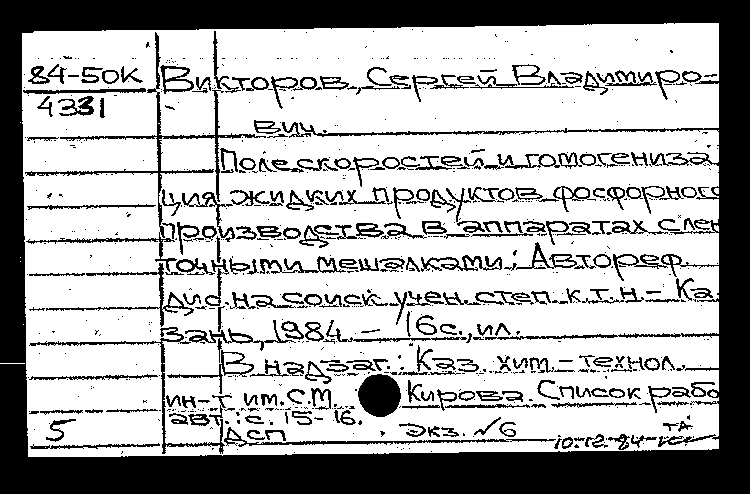 84-50к Викторов, Сергей Владимиро-
4331
вич.
Поле скоростей и гомогениза
ция жидких продуктов фосфорного
производства в аппаратах с лен
точными мешалками: Автореф.
дис. на соиск. учен. степ. к.т.н. - Ка
зань, 1984. - 16с., ил.
В надзаг.: Каз. хим.-технол.
ин-т им. С.М. Кирова. Список рабо
авт.: с. 15-16.
5 ДСП Экз. №6
10.12.84
ТА